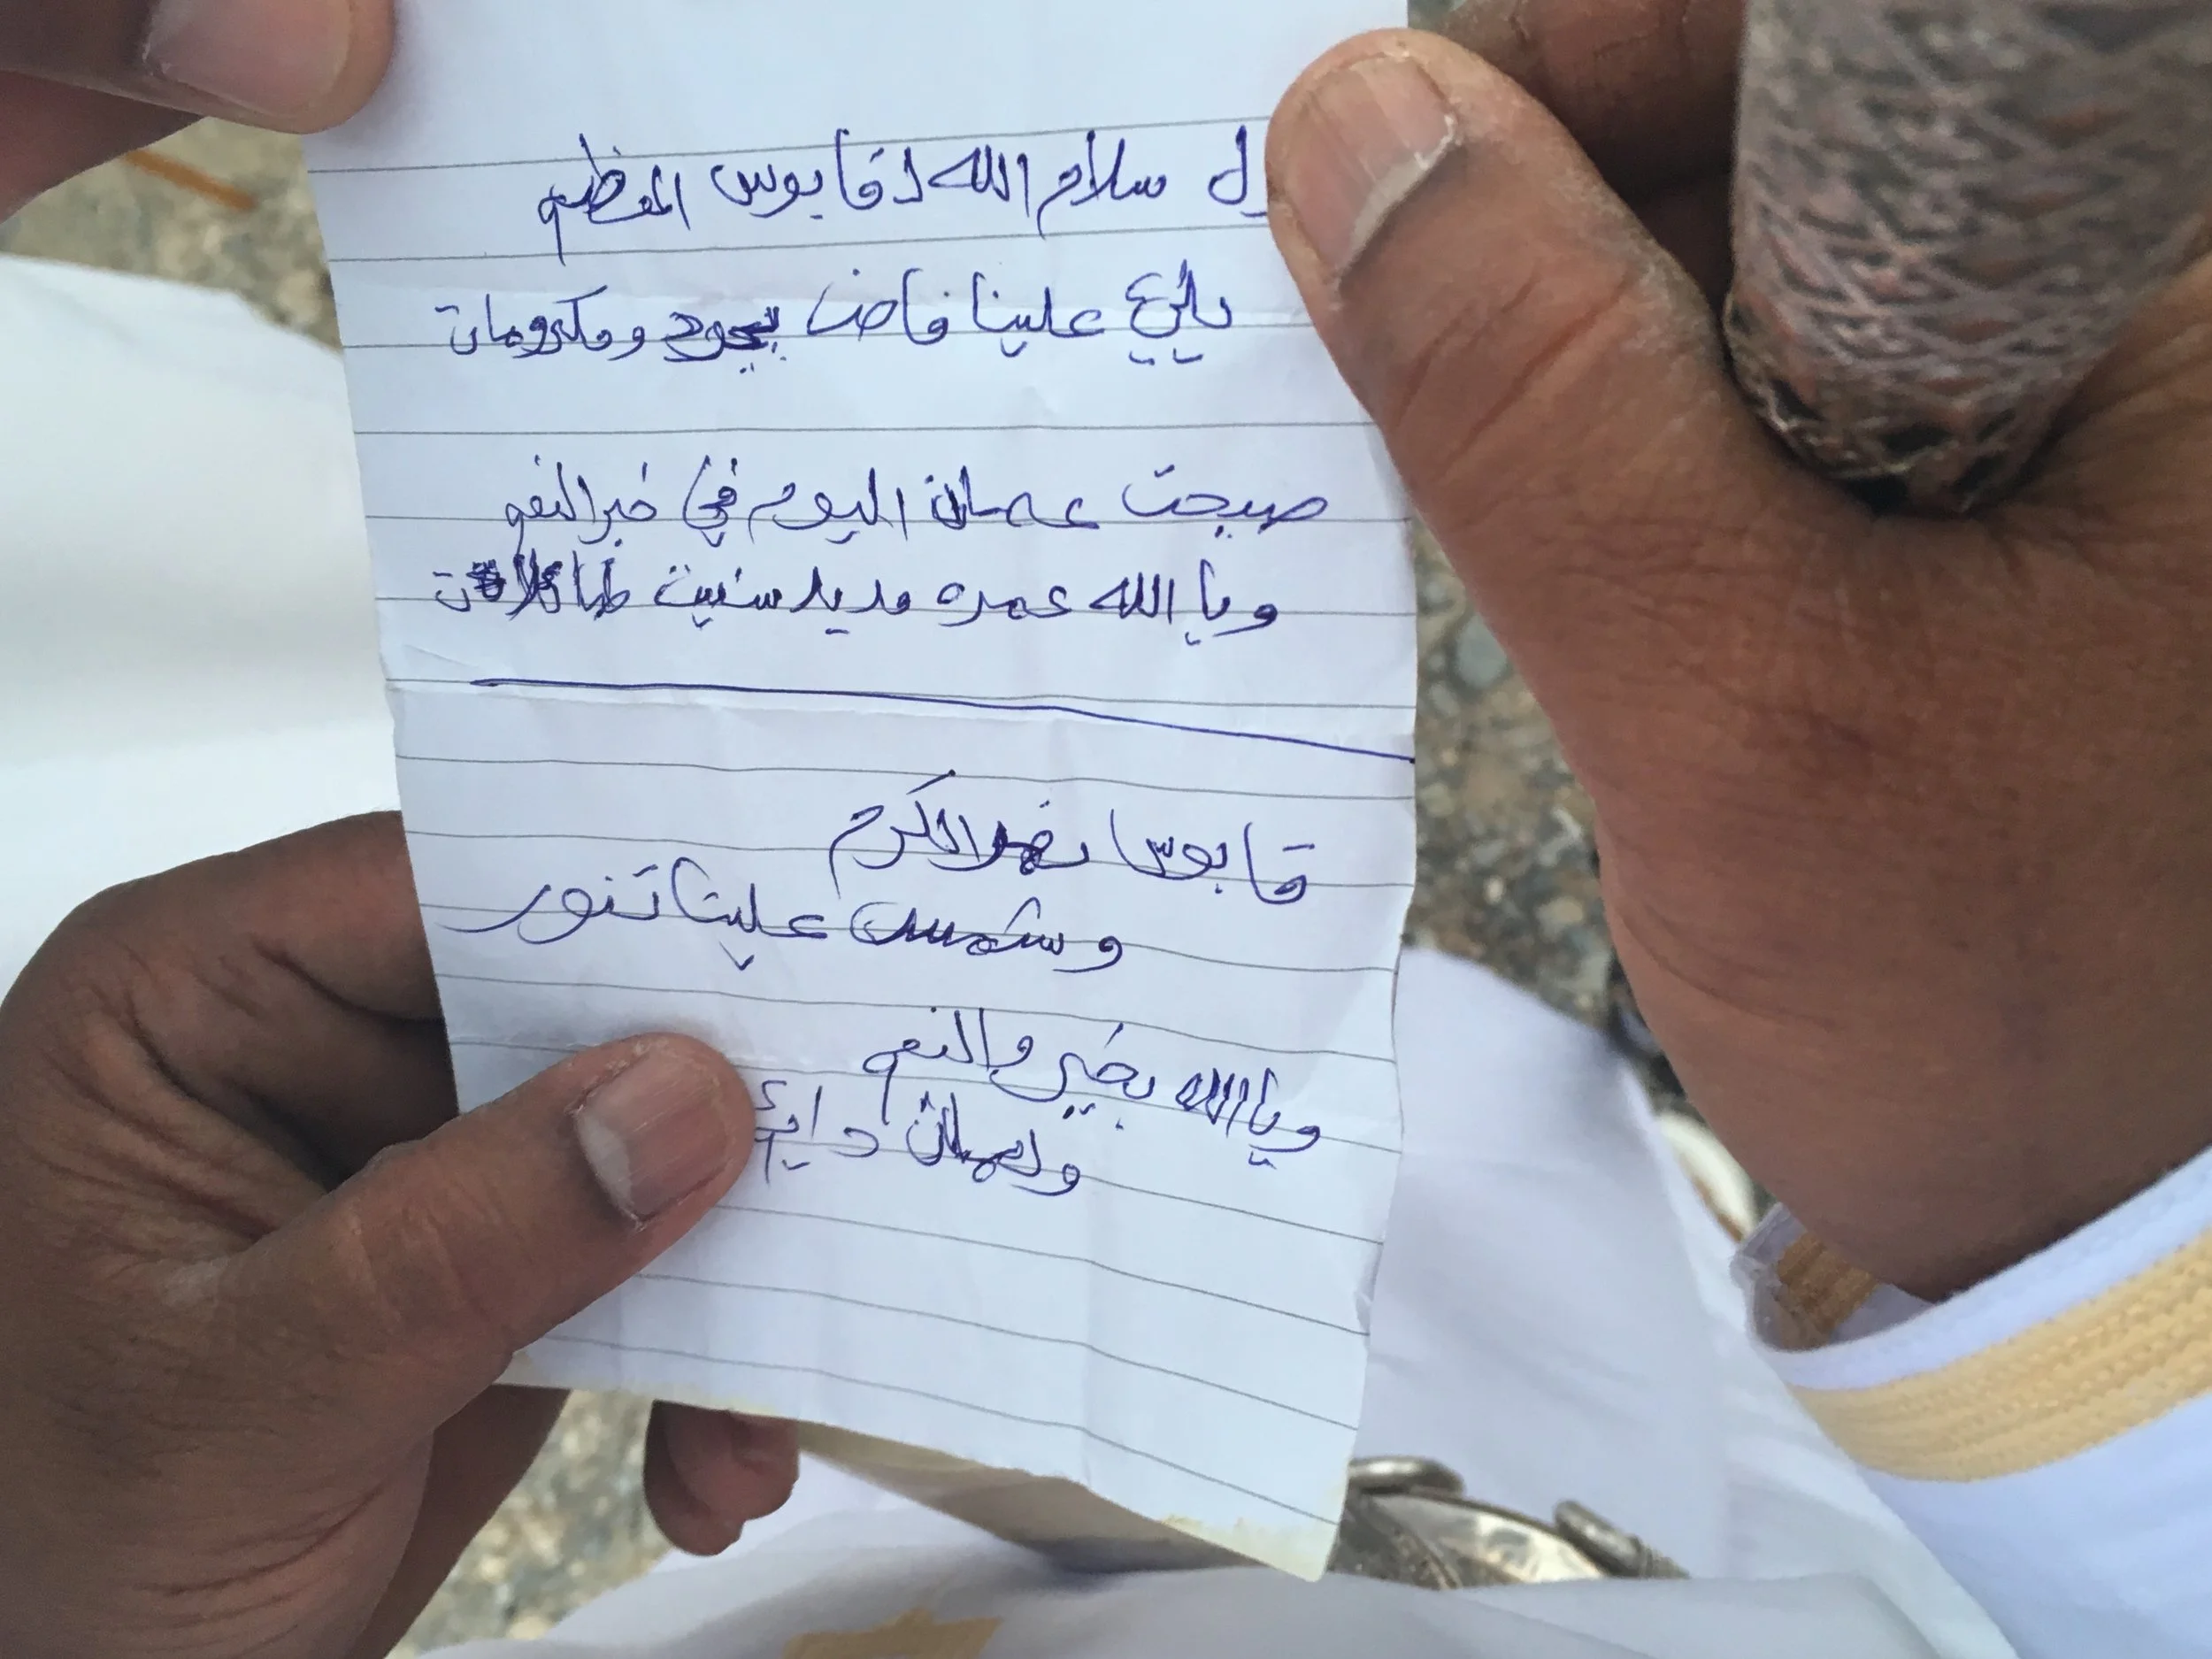 سلام الله لقابوس المعظم
علينا فاض بجود ومكرومات
صبحت عمان اليوم في خير النعم
ويا الله عمره مديد سنيت
قابوس الاكرم
وشمس علينا تنور
ويا الله بخير والنعم
ولعمان دايم